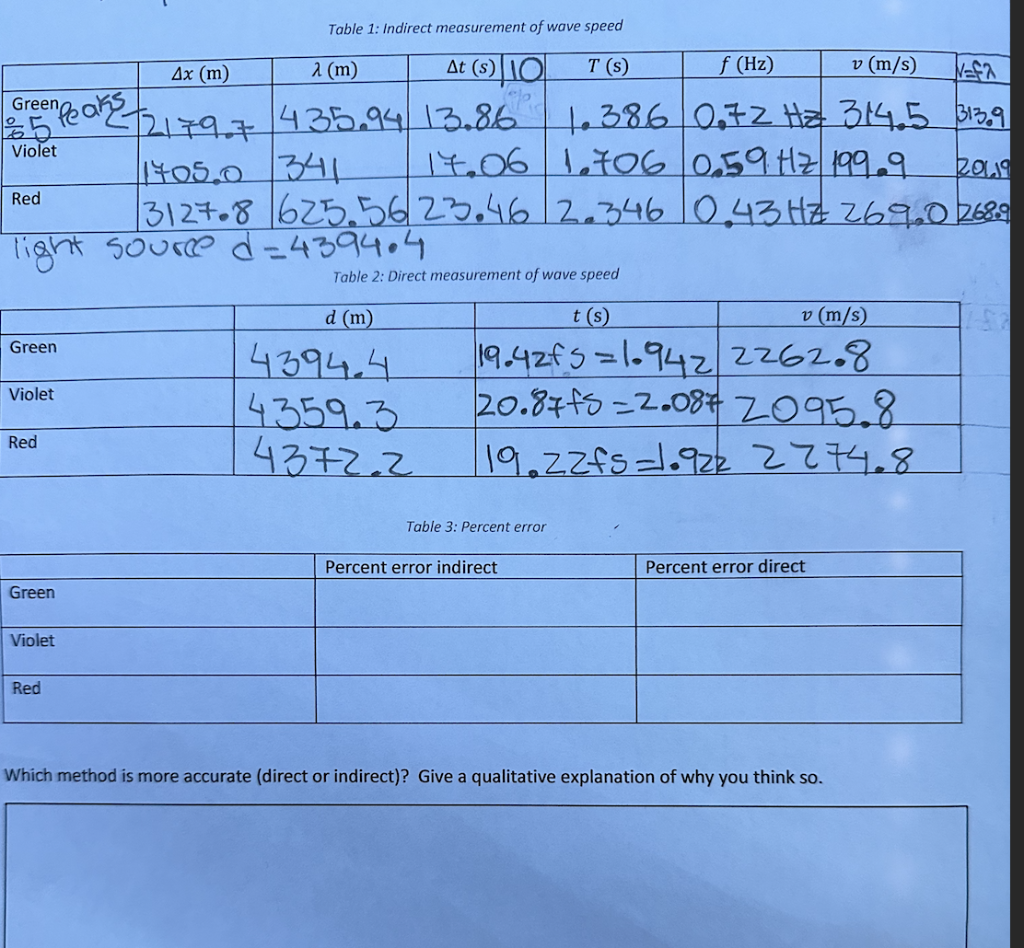 Table 1: Indirect measurement of wave speed
Δx (m) λ (m) Δt (s) | 10 T (s) f (Hz) v (m/s) v=fλ
Green % 5 peaks 2179.7 435.94 13.86 1.386 0.72 Hz 314.5 313.9
Violet 1705.0 341 17.06 1.706 0.59 Hz 199.9 201.19
Red 3127.8 625.56 23.46 2.346 0.43 Hz 269.0 268.9
light source d = 4394.4
Table 2: Direct measurement of wave speed
d (m) t (s) v (m/s)
Green 4394.4 19.42fs = 1.942 2262.8
Violet 4359.3 20.87fs = 2.087 2095.8
Red 4372.2 19.22fs = 1.922 2274.8
Table 3: Percent error
Percent error indirect Percent error direct
Green
Violet
Red
Which method is more accurate (direct or indirect)? Give a qualitative explanation of why you think so.